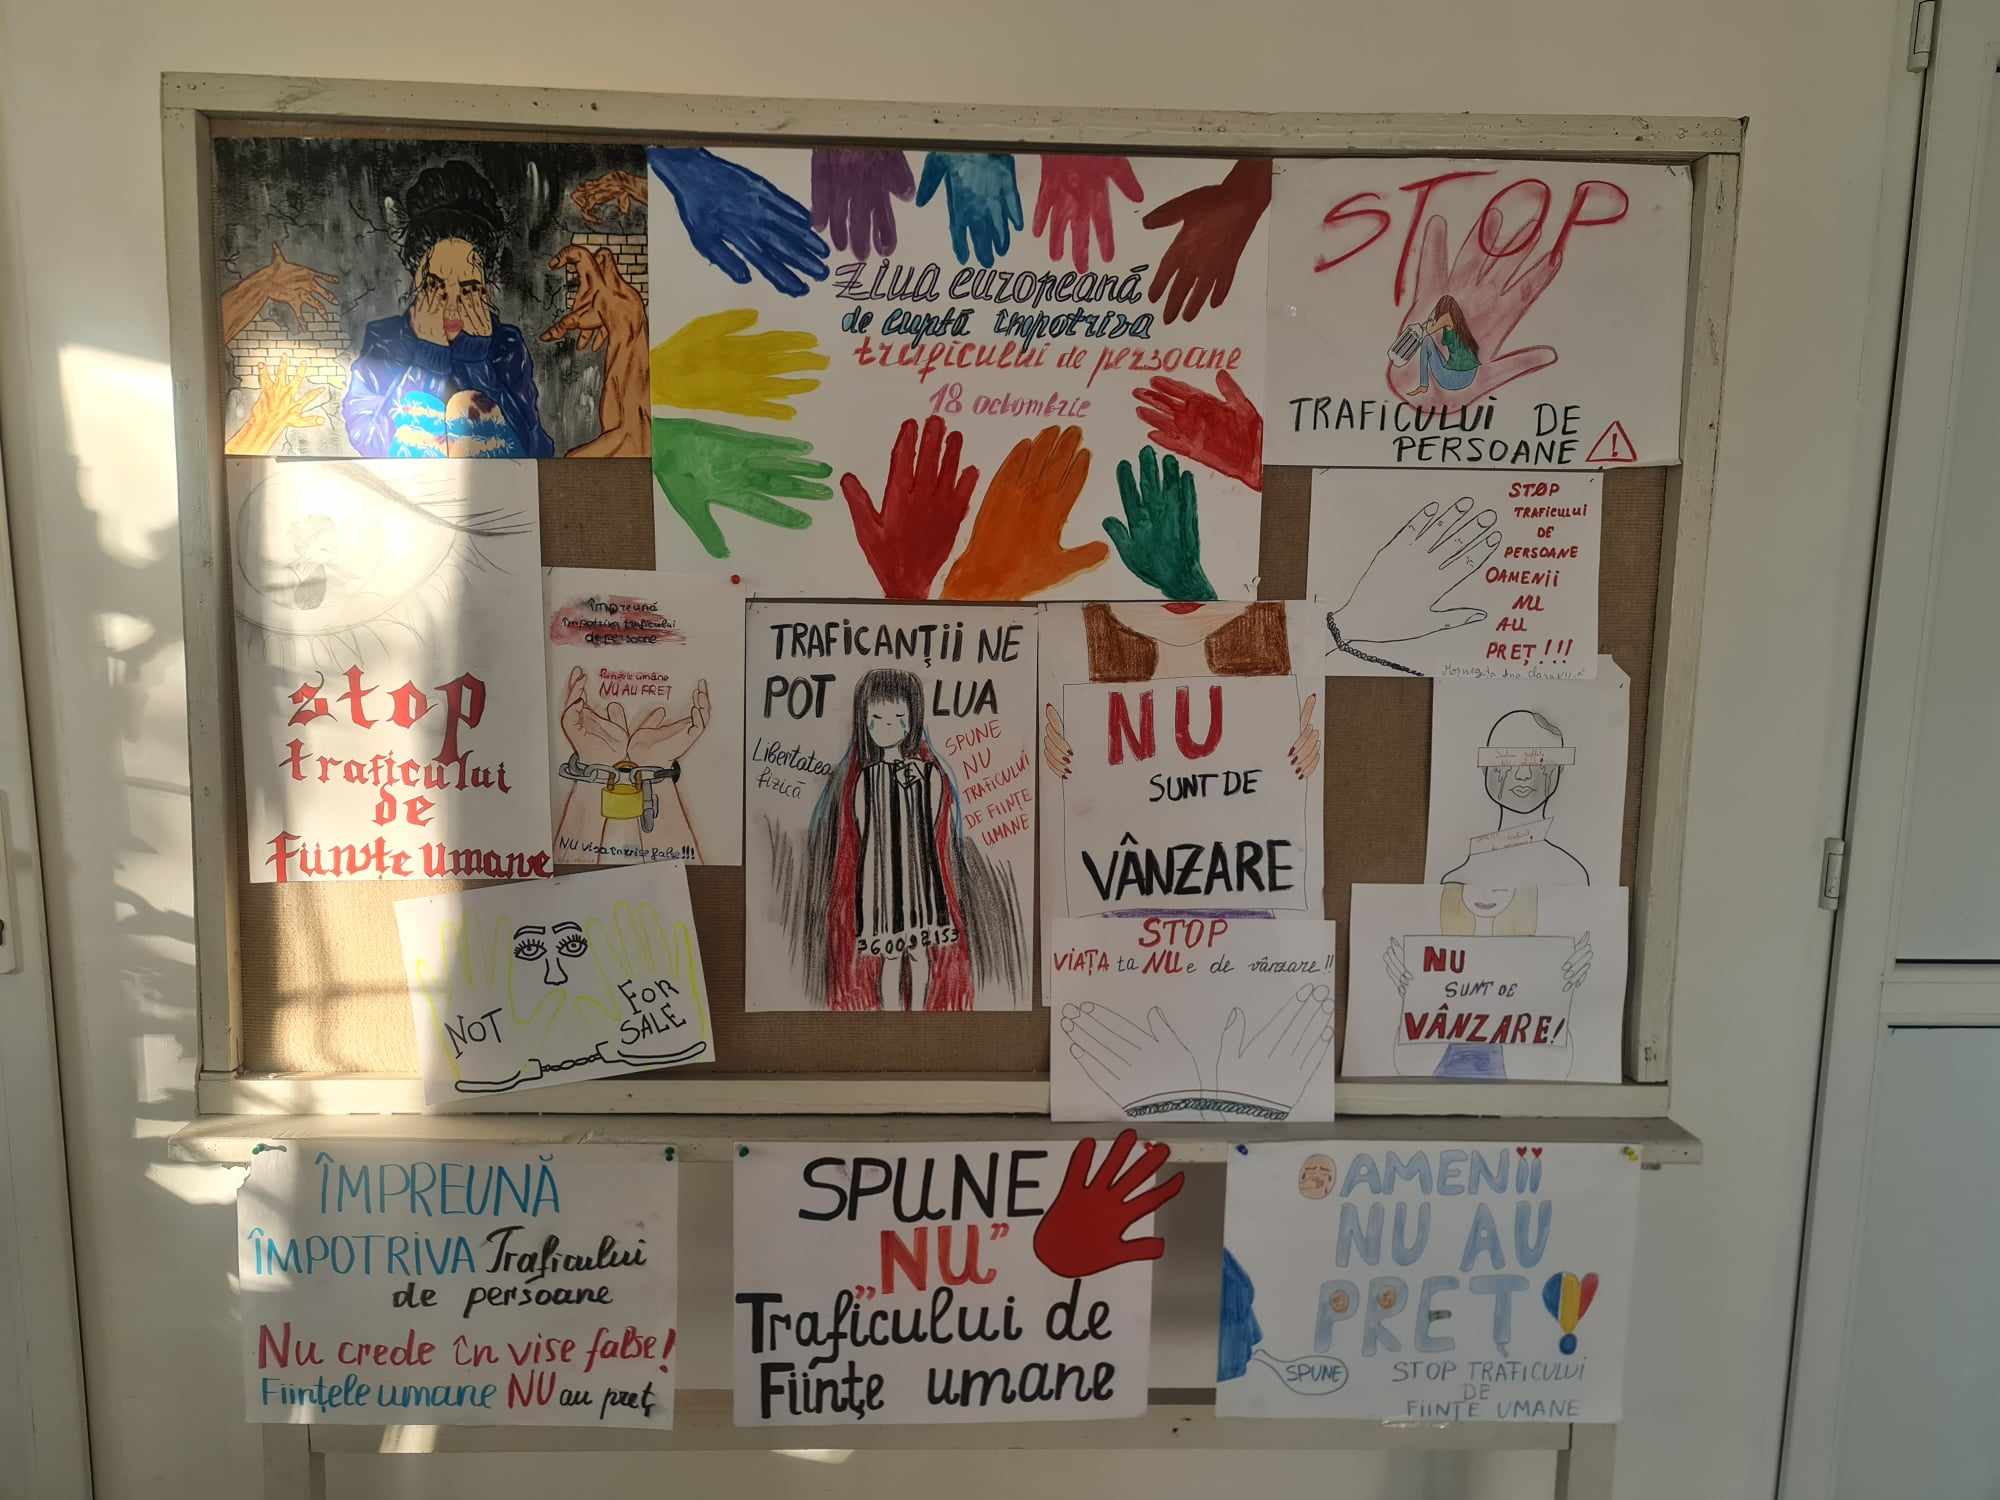 Ziua europeană
de luptă împotriva
traficului de persoane
18 octombrie
STOP
TRAFICULUI DE
PERSOANE
!
stop
traficului
de
Ființe umane
Împreună
împotriva traficului
de persoane
Ființele umane
NU AU PREȚ
NU visa în vise false!!!
TRAFICANȚII NE
POT LUA
Libertatea
fizică
SPUNE
NU
TRAFICULUI
DE FIINȚE
UMANE
360092153
NU
SUNT DE
VÂNZARE
STOP
TRAFICULUI
DE
PERSOANE
OAMENII
NU
AU
PREȚ!!!
NOT
FOR
SALE
STOP
VIAȚA ta NU e de vânzare!!
NU
SUNT DE
VÂNZARE!
ÎMPREUNĂ
ÎMPOTRIVA Traficului
de persoane
Nu crede în vise false!
Ființele umane NU au preț
SPUNE
„NU”
Traficului de
Ființe umane
OAMENII
NU AU
PREȚ!
SPUNE
STOP TRAFICULUI
DE
FIINȚE UMANE